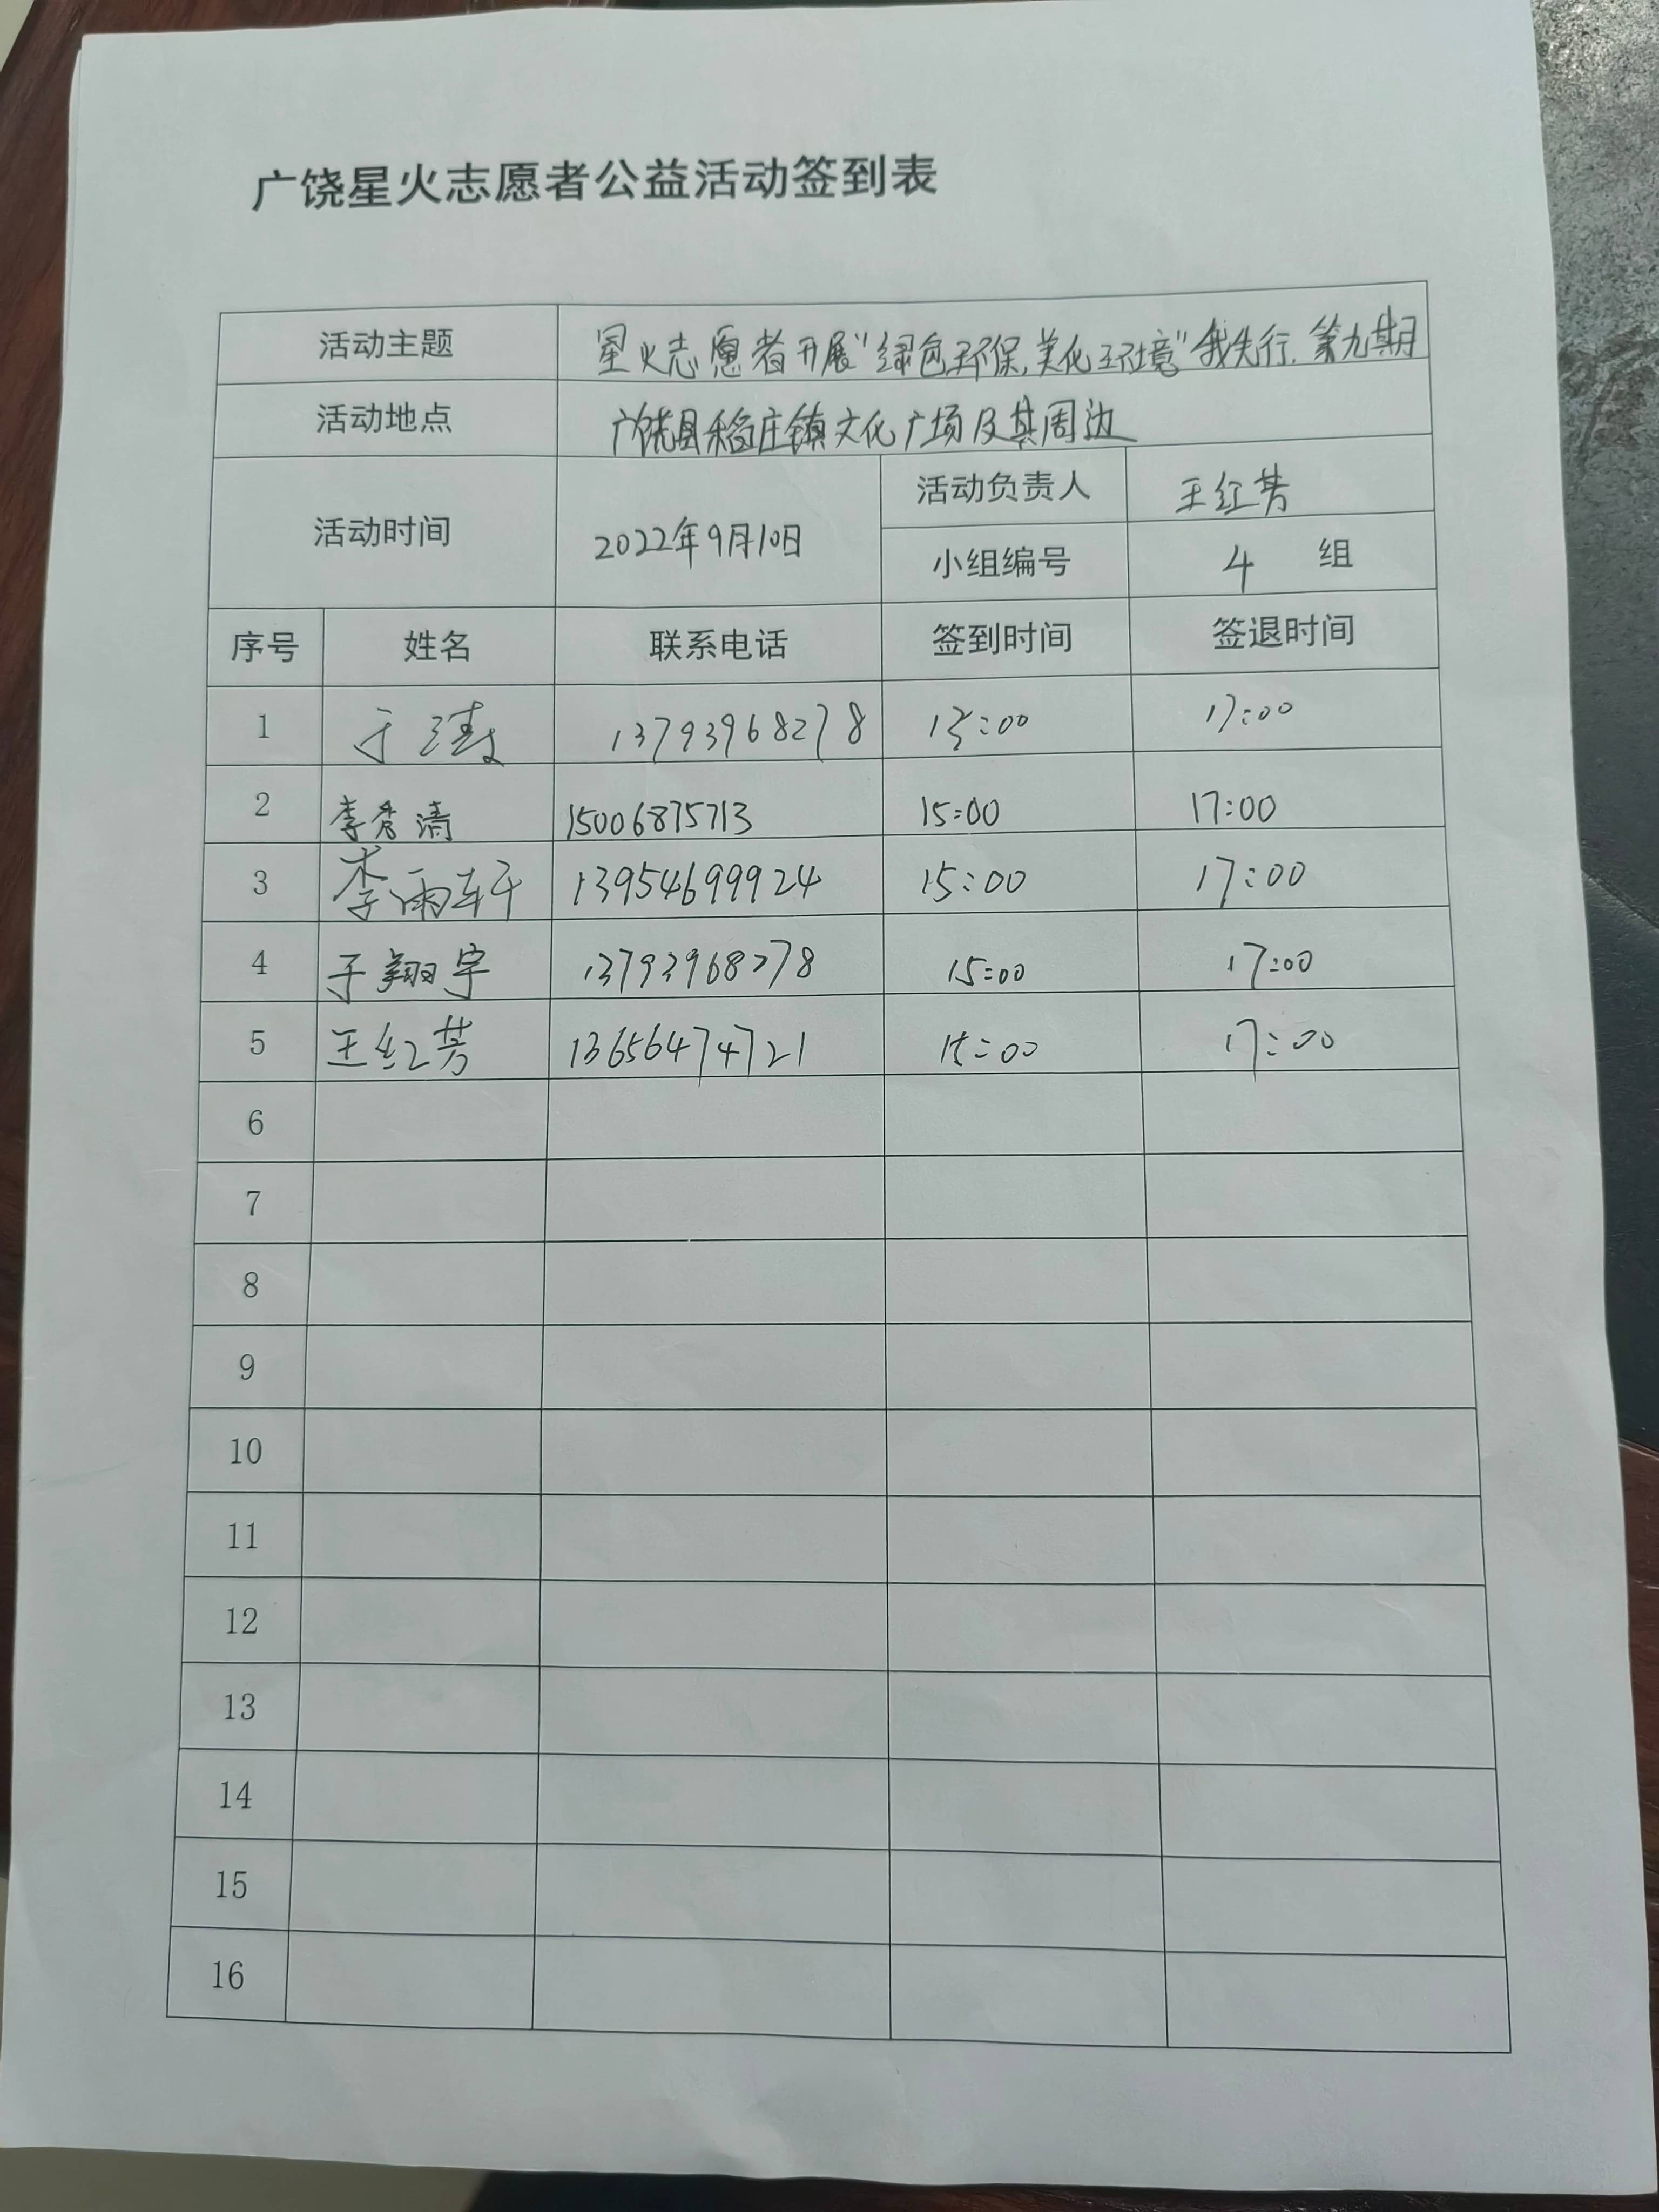 广饶星火志愿者公益活动签到表
活动主题 星火志愿者开展“绿色环保,美化环境”我先行.第九期
活动地点 广饶县稻庄镇文化广场及其周边
活动时间 2022年9月10日 活动负责人 王红芳
小组编号 4 组
序号 姓名 联系电话 签到时间 签退时间
1 于涛 13793968278 15:00 17:00
2 李秀清 15006875713 15:00 17:00
3 李雨轩 13954699924 15:00 17:00
4 于翔宇 13793968278 15:00 17:00
5 王红芳 13656474721 15:00 17:00
6
7
8
9
10
11
12
13
14
15
16